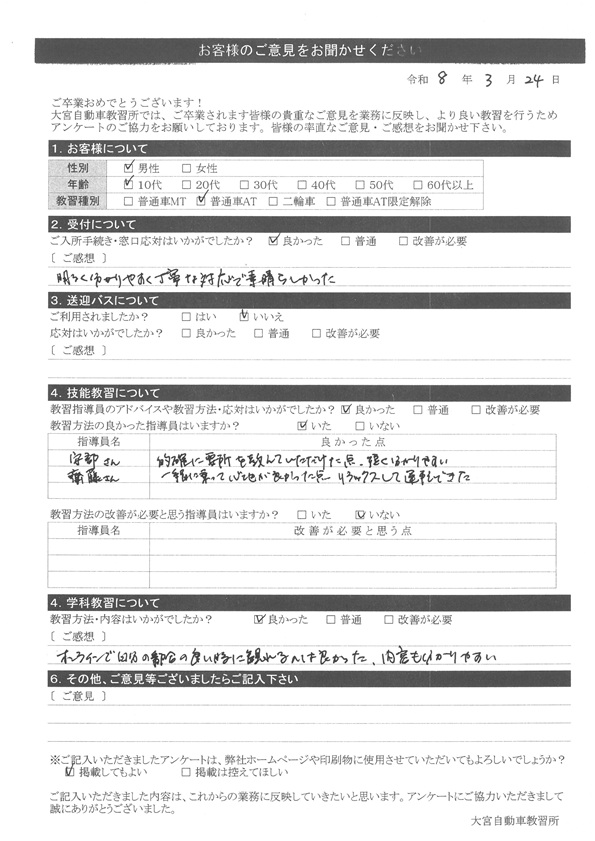 お客様のご意見をお聞かせください
令和 8 年 3 月 24 日
ご卒業おめでとうございます！
大宮自動車教習所では、ご卒業されます皆様の貴重なご意見を業務に反映し、より良い教習を行うため
アンケートのご協力をお願いしております。皆様の率直なご意見・ご感想をお聞かせ下さい。
1. お客様について
性別 ☑ 男性 □ 女性
年齢 ☑ 10代 □ 20代 □ 30代 □ 40代 □ 50代 □ 60代以上
教習種別 □ 普通車MT ☑ 普通車AT □ 二輪車 □ 普通車AT限定解除
2. 受付について
ご入所手続き・窓口応対はいかがでしたか？ ☑ 良かった □ 普通 □ 改善が必要
〔 ご感想 〕
明るく分かりやすく丁寧な対応で素晴らしかった
3. 送迎バスについて
ご利用されましたか？ □ はい ☑ いいえ
応対はいかがでしたか？ □ 良かった □ 普通 □ 改善が必要
〔 ご感想 〕
4. 技能教習について
教習指導員のアドバイスや教習方法・応対はいかがでしたか？ ☑ 良かった □ 普通 □ 改善が必要
教習方法の良かった指導員はいますか？ ☑ いた □ いない
指導員名 良かった点
さん 的確に要所を教えていただけた点
齋藤さん 一緒に乗って心地が良かった点 リラックスして運転できた
教習方法の改善が必要と思う指導員はいますか？ □ いた ☑ いない
指導員名 改善が必要と思う点
4. 学科教習について
教習方法・内容はいかがでしたか？ ☑ 良かった □ 普通 □ 改善が必要
〔 ご感想 〕
オンラインで自分の都合の良い時に観れるのは良かった、内容も分かりやすい
6. その他、ご意見等ございましたらご記入下さい
〔 ご意見 〕
※ご記入いただきましたアンケートは、弊社ホームページや印刷物に使用させていただいてもよろしいでしょうか？
☑ 掲載してもよい □ 掲載は控えてほしい
ご記入いただきました内容は、これからの業務に反映していきたいと思います。アンケートにご協力いただきまして
誠にありがとうございました。
大宮自動車教習所